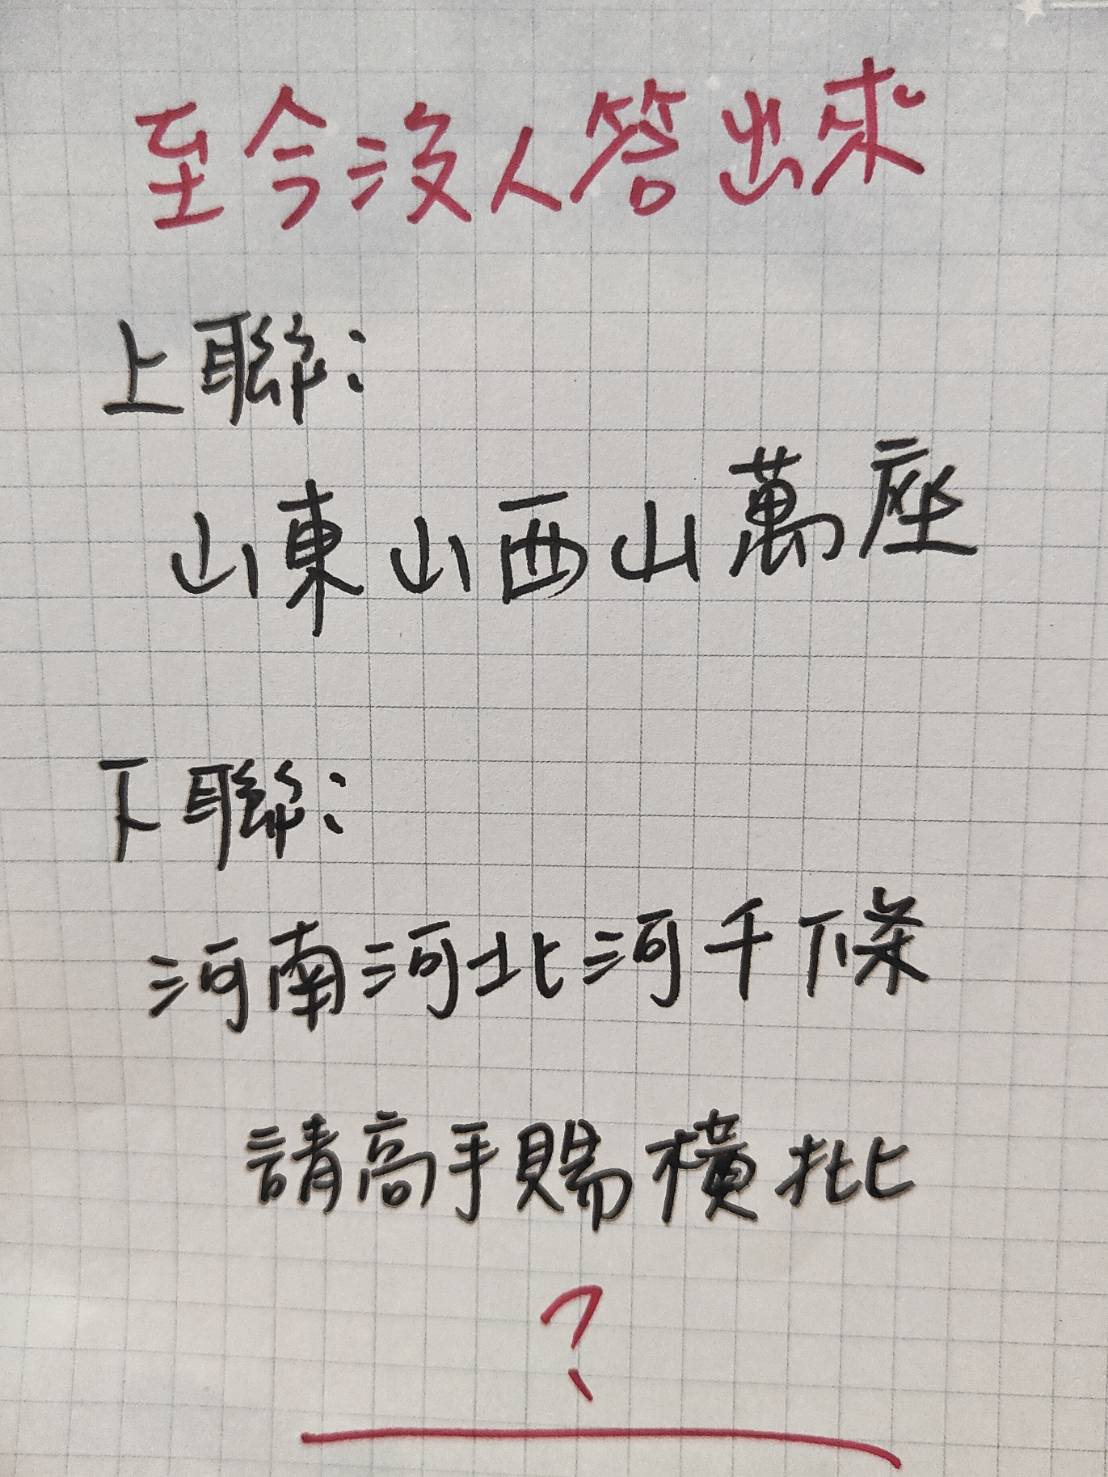 至今沒人答出來
上聯:
山東山西山萬座
下聯:
河南河北河千條
請高手賜橫批
?